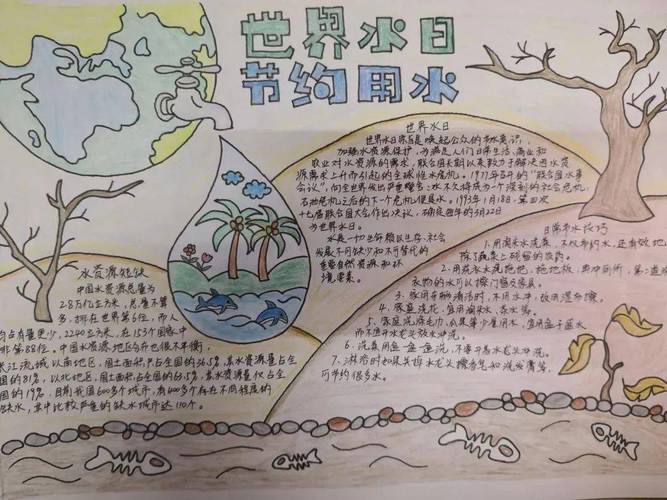 世界水日
节约用水
世界水日
世界水日宗旨是唤起公众的节水意识,
加强水资源保护,为满足人们日常生活、商业和
农业对水资源的需求,联合国长期以来致力于解决因水资
源需求上升而引起的全球性水危机。1977年召开的"联合国水事
会议",向全世界发出严重警告:水不久将成为一个深刻的社会危机,
石油危机之后的下一个危机便是水。1993年1月18日,第四次
十七届联合国大会作出决议,确定每年的3月22日
为世界水日。
水是一切生命赖以生存,社会
发展不可缺少和不可替代的
重要自然资源和环
境要素。
水资源短缺
中国水资源总量为
2.8万亿立方米,总量不算
多,排在世界第6位,而人
均占有量更少,2240立方米,在153个国家中
排第88位。中国水资源地区分布也很不平衡,
长江流域以南地区,国土面积只占全国的36.5%,其水资源量占全
国的81%,以北地区,国土面积占全国的63.5%,其水资源量仅占全
国的19%,目前我国600多个城市,有400多个存在不同程度的
缺水,其中比较严重的缺水城市达110个。
日常节水技巧
1.用淘米水洗菜,不仅节约水,还有效地
除了蔬菜上残留的农药。
2.用洗衣水洗拖把、拖地板、再冲厕所,第2道
衣物的水可以擦门窗及家具。
3、家用车辆清洁时,不用水冲,改用湿布擦。
4、家庭浇花,宜用淘米水、茶水等。
5、家庭洗涤毛巾,瓜果等少量用水,宜用盆子盛水
而不要开水龙头放水冲洗。
6、洗菜用盆一盆一盆洗,不要开着水龙头冲洗。
7、淋浴时如果关掉水龙头擦香皂和洗发膏等,
可节约很多水。